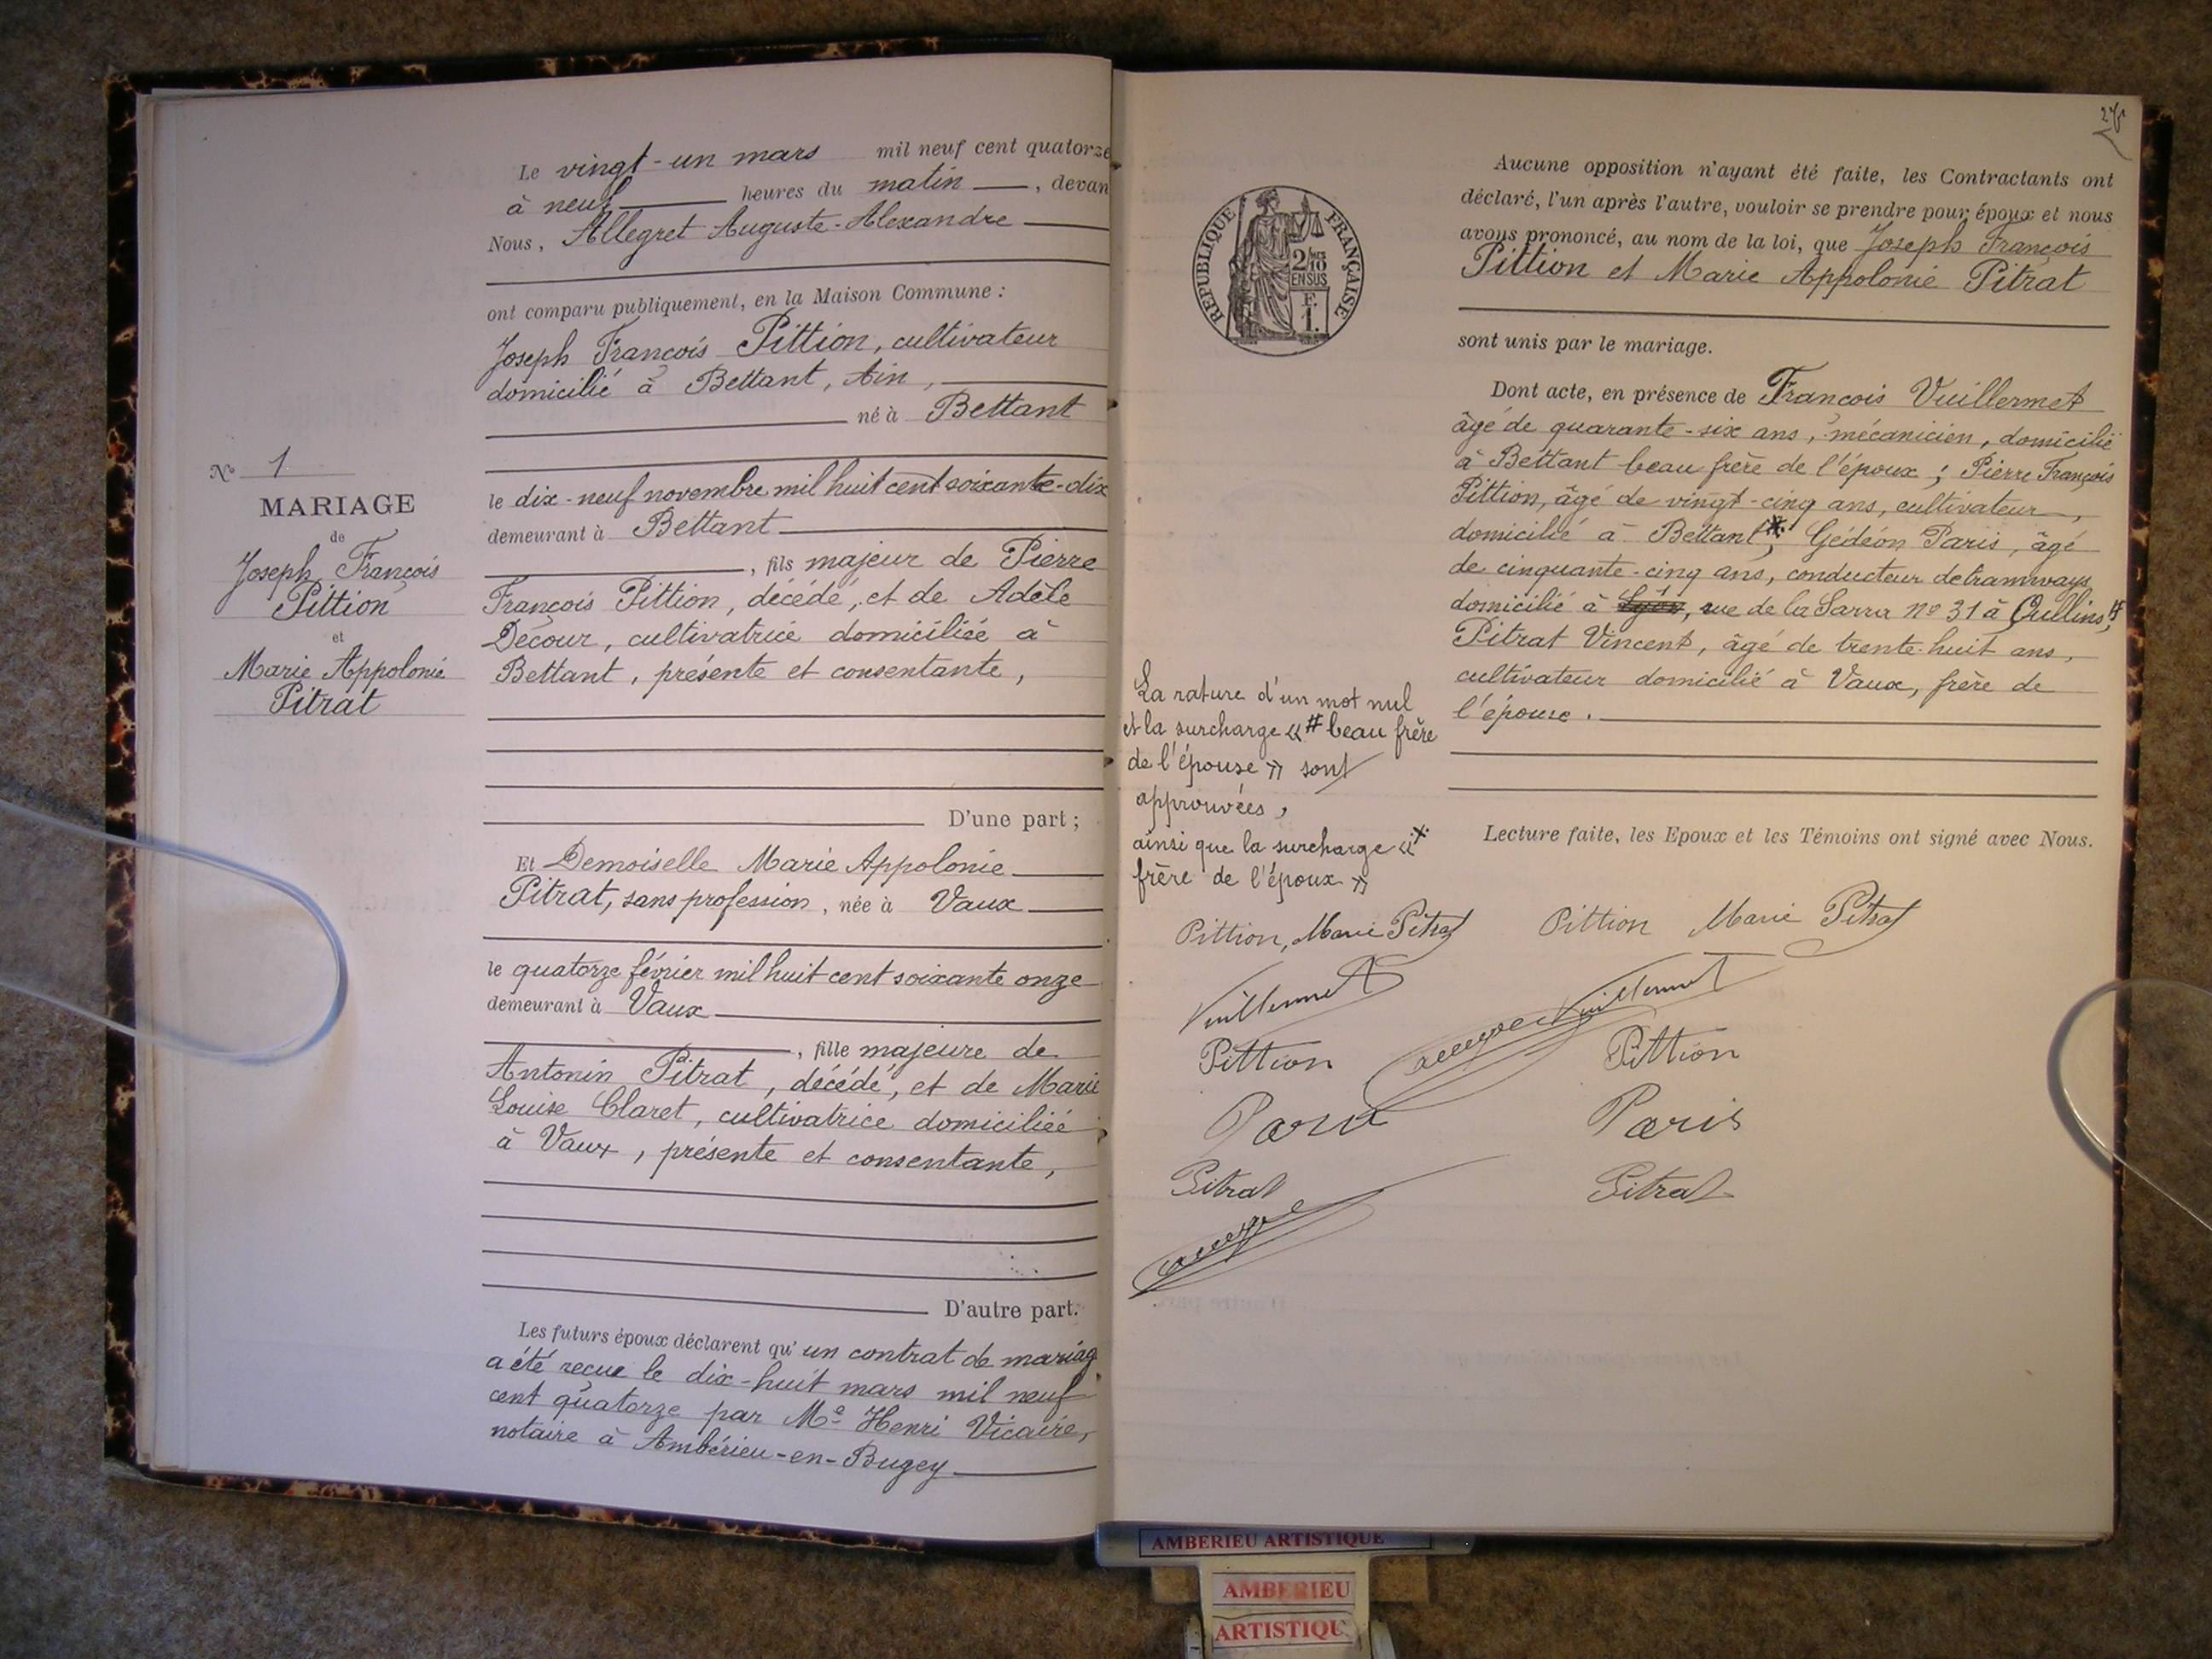 Le vingt-un mars mil neuf cent quatorze
à neuf heures du matin, devan
Nous, Allegret Auguste-Alexandre
ont comparu publiquement, en la Maison Commune :
Joseph François Pittion, cultivateur
domicilié à Bettant, Ain,
né à Bettant
le dix-neuf novembre mil huit cent soixante-dix
demeurant à Bettant
, fils majeur de Pierre
François Pittion, décédé, et de Adèle
Décour, cultivatrice domiciliée à
Bettant, présente et consentante,
D'une part ;
Et Demoiselle Marie Appolonie
Pitrat, sans profession, née à Vaux
le quatorze février mil huit cent soixante onze
demeurant à Vaux
, fille majeure de
Antonin Pitrat, décédé, et de Marie
Louise Claret, cultivatrice domiciliée
à Vaux, présente et consentante,
D'autre part.
Les futurs époux déclarent qu'un contrat de mariag
a été reçue le dix-huit mars mil neuf
cent quatorze par Me Henri Vicaire,
notaire à Ambérieu-en-Bugey
N° 1
MARIAGE
de
Joseph François
Pittion
et
Marie Appolonie
Pitrat
REPUBLIQUE FRANÇAISE
2/10
EN SUS
F.
1.
Aucune opposition n'ayant été faite, les Contractants ont
déclaré, l'un après l'autre, vouloir se prendre pour époux et nous
avons prononcé, au nom de la loi, que Joseph François
Pittion et Marie Appolonie Pitrat
sont unis par le mariage.
Dont acte, en présence de François Vuillermet
âgé de quarante-six ans, mécanicien, domicilié
à Bettant beau frère de l'époux ; Pierre François
Pittion, âgé de vingt-cinq ans, cultivateur,
domicilié à Bettant*; Gédéon Paris, âgé
de cinquante-cinq ans, conducteur de tramways,
domicilié à Lyon, rue de la Sarra n° 31 à Oullins,#
Pitrat Vincent, âgé de trente-huit ans,
cultivateur domicilié à Vaux, frère de
l'épouse.
Lecture faite, les Epoux et les Témoins ont signé avec Nous.
La rature d'un mot nul
et la surcharge «# beau frère
de l'épouse » sont
approuvées,
ainsi que la surcharge «*
frère de l'époux »
Pittion, Marie Pitrat
Vuillermet
Pittion
Paris
Pitrat
Pittion Marie Pitrat
Vuillermet
Pittion
Paris
Pitrat
AMBERIEU ARTISTIQUE
AMBERIEU
ARTISTIQU